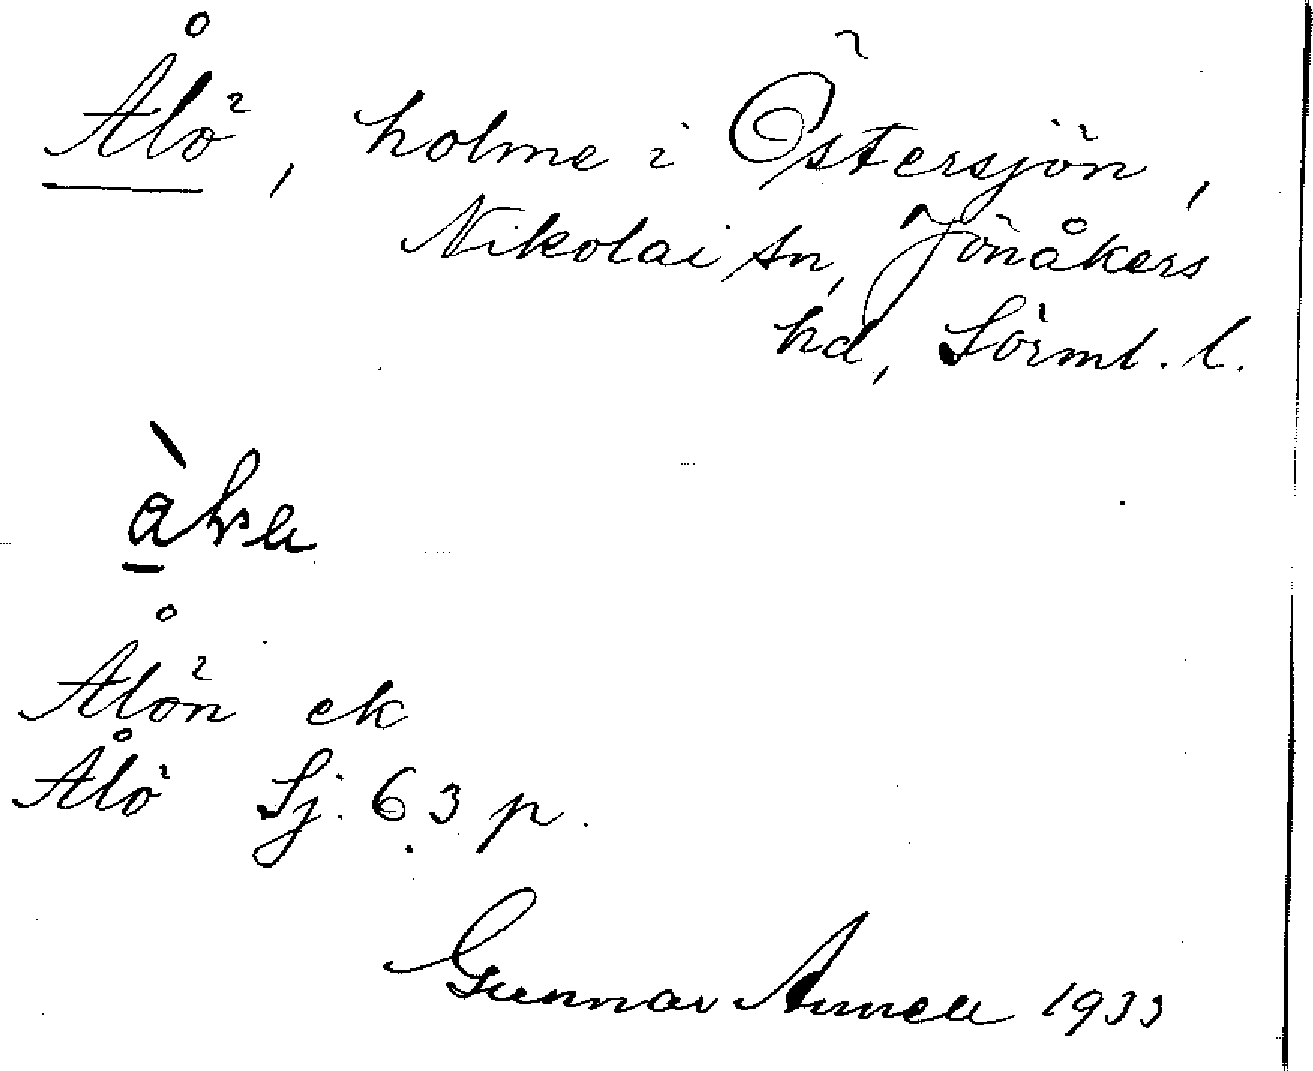 Ålö, holme i Östersjön,
Nikolai sn, Jönåkers
hd, Sörml. l.
Ålön ek
Ålö Sj. 63 p.
Gunnar Annell 1933